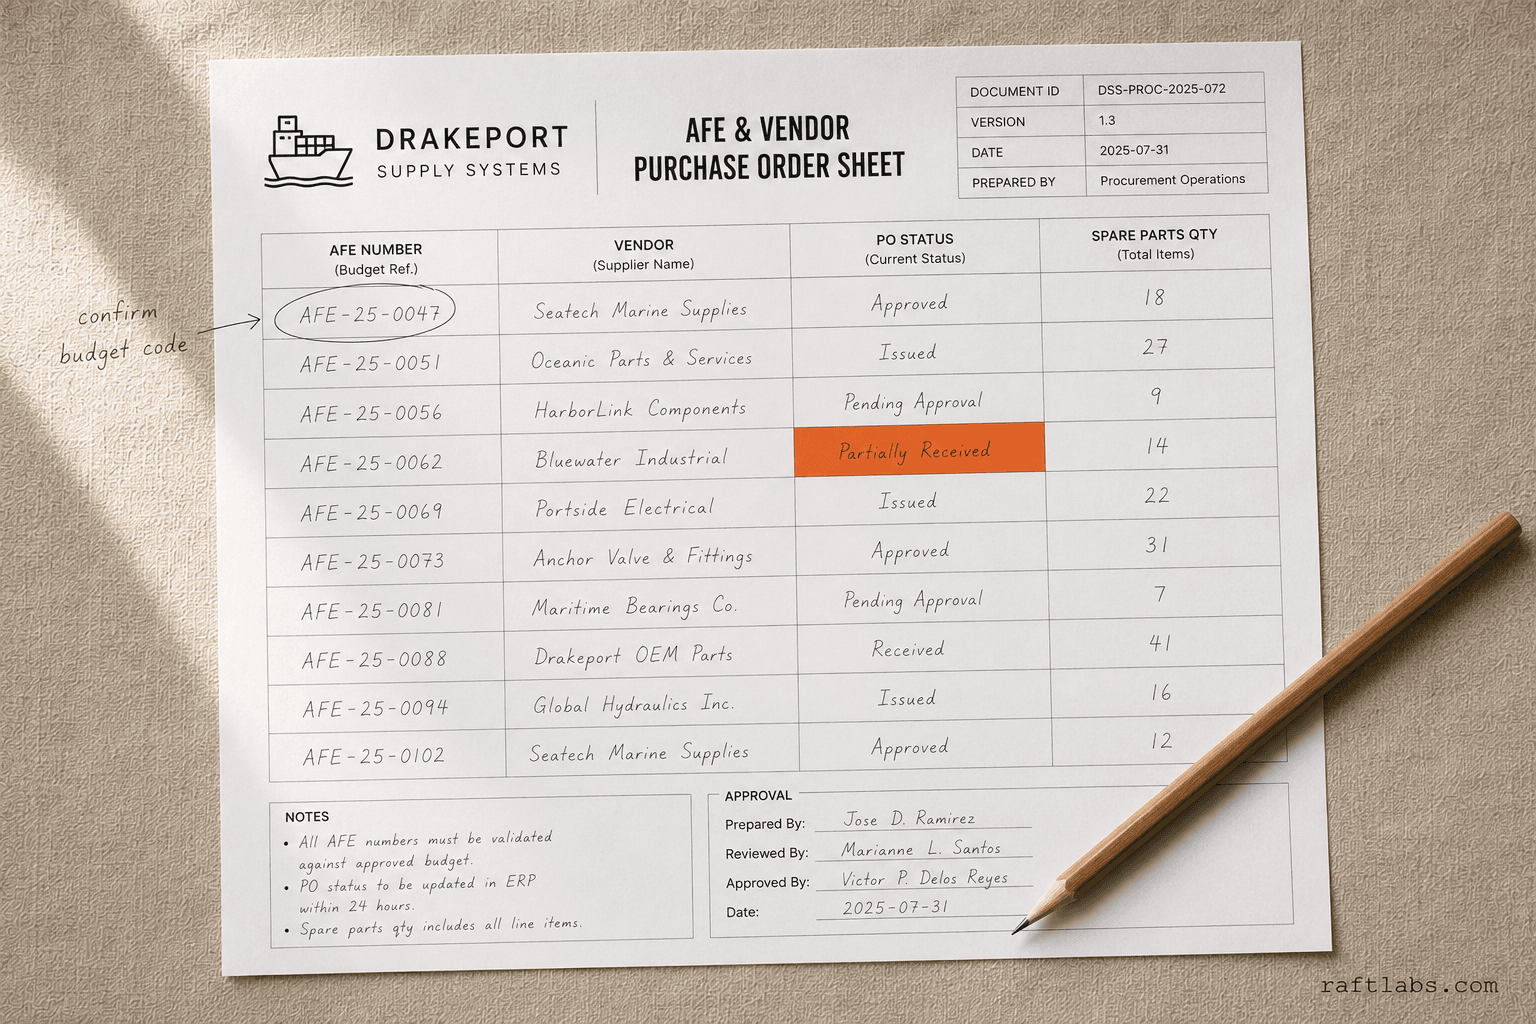 DRAKEPORT
SUPPLY SYSTEMS
AFE & VENDOR
PURCHASE ORDER SHEET
DOCUMENT ID DSS-PROC-2025-072
VERSION 1.3
DATE 2025-07-31
PREPARED BY Procurement Operations
AFE NUMBER VENDOR PO STATUS SPARE PARTS QTY
(Budget Ref.) (Supplier Name) (Current Status) (Total Items)
confirm
budget code
AFE-25-0047 Seatech Marine Supplies Approved 18
AFE-25-0051 Oceanic Parts & Services Issued 27
AFE-25-0056 HarborLink Components Pending Approval 9
AFE-25-0062 Bluewater Industrial Partially Received 14
AFE-25-0069 Portside Electrical Issued 22
AFE-25-0073 Anchor Valve & Fittings Approved 31
AFE-25-0081 Maritime Bearings Co. Pending Approval 7
AFE-25-0088 Drakeport OEM Parts Received 41
AFE-25-0094 Global Hydraulics Inc. Issued 16
AFE-25-0102 Seatech Marine Supplies Approved 12
NOTES
• All AFE numbers must be validated
against approved budget.
• PO status to be updated in ERP
within 24 hours.
• Spare parts qty includes all line items.
APPROVAL
Prepared By: Jose D. Ramirez
Reviewed By: Marianne L. Santos
Approved By: Victor P. Delos Reyes
Date: 2025-07-31
raftlabs.com